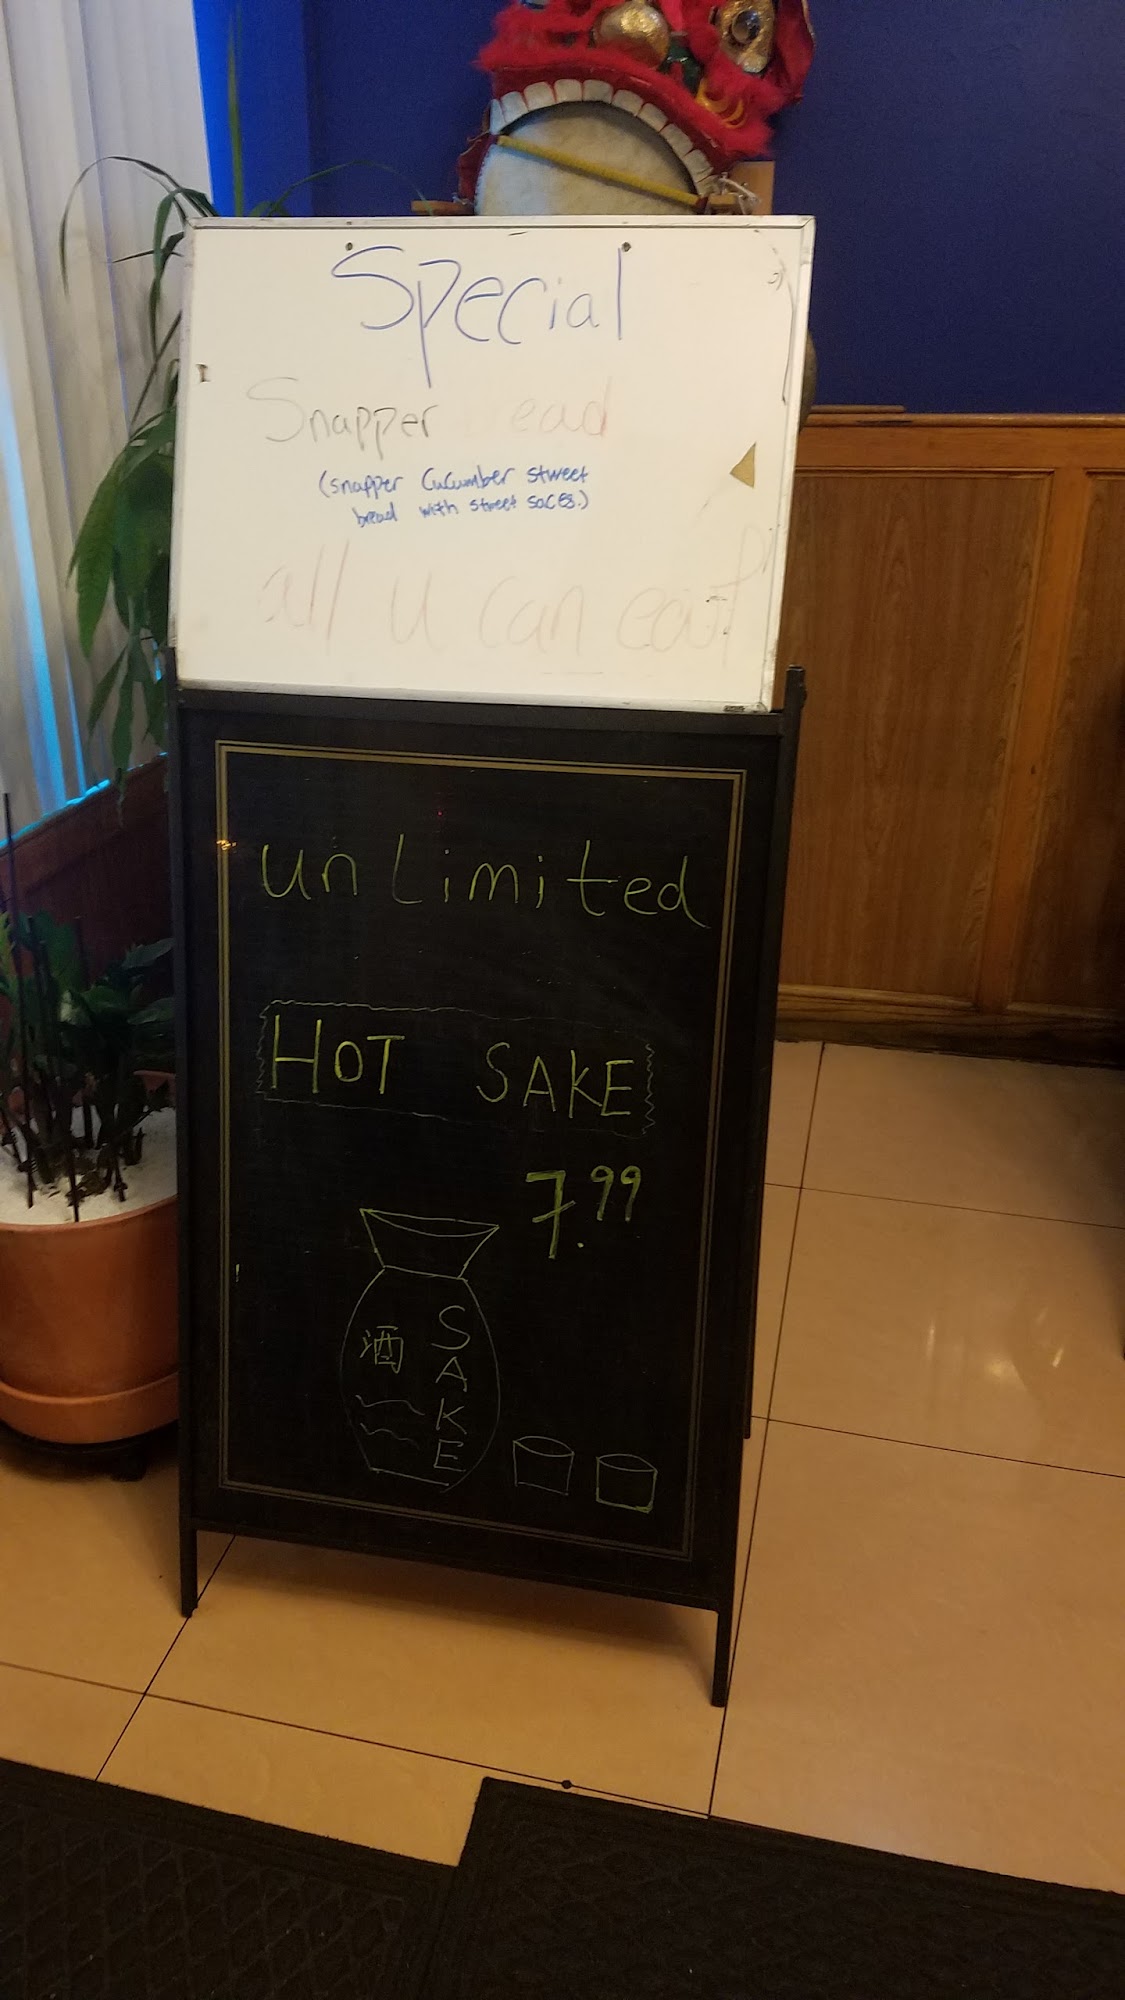 Special
Snapper ead
(snapper Cucumber stweet
bread with street saces.)
all u can eat
unLimited
HOT SAKE
7.99
酒
SAKE